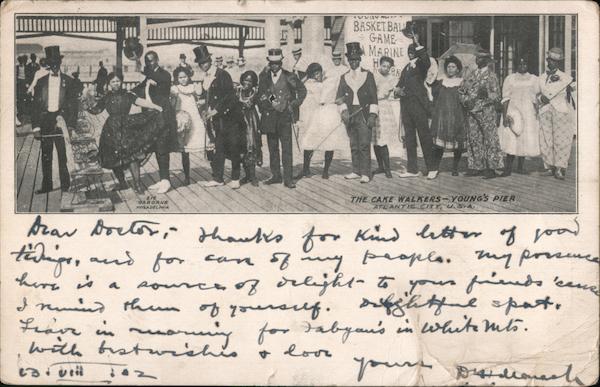 YOUNG'S
BASKET BALL
GAME
MARINE
HA
876
OSBORNE
PHILADELPHIA
THE CAKE WALKERS — YOUNG'S PIER
ATLANTIC CITY, U.S.A.
Dear Doctor,- Thanks for kind letter of good
tidings, and for care of my people. My presence
here is a source of delight to your friends 'cause
I remind them of yourself. Delightful spot.
Leave in morning for Fabyan's in White Mts.
With best wishes & love
yours
VIII 02